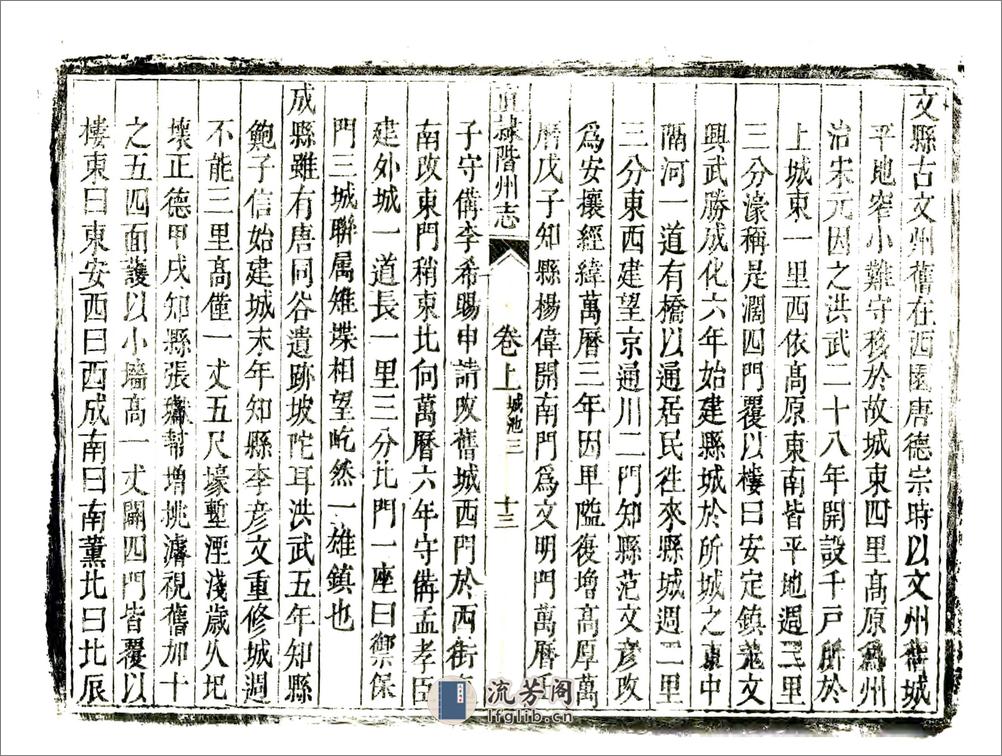 文縣古文州舊在西園唐德宗時以文州舊城
平地窄小難守移於故城東四里高原為州
治宋元因之洪武二十八年開設千戶所於
上城東一里西依高原東南皆平地週三里
三分濠稱是濶四門覆以樓曰安定鎮羗文
興武勝成化六年始建縣城於所城之東中
隔河一道有橋以通居民徃來縣城週二里
三分東西建望京通川二門知縣范文彦改
為安攘經緯萬曆三年因卑隘復增高厚萬
曆戊子知縣楊偉開南門為文明門萬曆
直隸階州志 卷上 城池三 十三
子守備李希賜申請改舊城西門於西街
南改東門稍東北向萬曆六年守備孟孝臣
建外城一道長一里三分北門一座曰禦保
門三城聯属雉堞相望屹然一雄鎮也
成縣雖有唐同谷遺跡坡陀耳洪武五年知縣
鮑子信始建城末年知縣李彦文重修城週
不能三里高僅一丈五尺壕塹湮淺歲久圮
壞正德甲戌知縣張幫增挑濬視舊加十
之五四面護以小墻高一丈闢四門皆覆以
樓東曰東安西曰西成南曰南薰北曰北辰
流芳阁
lfglib.cn